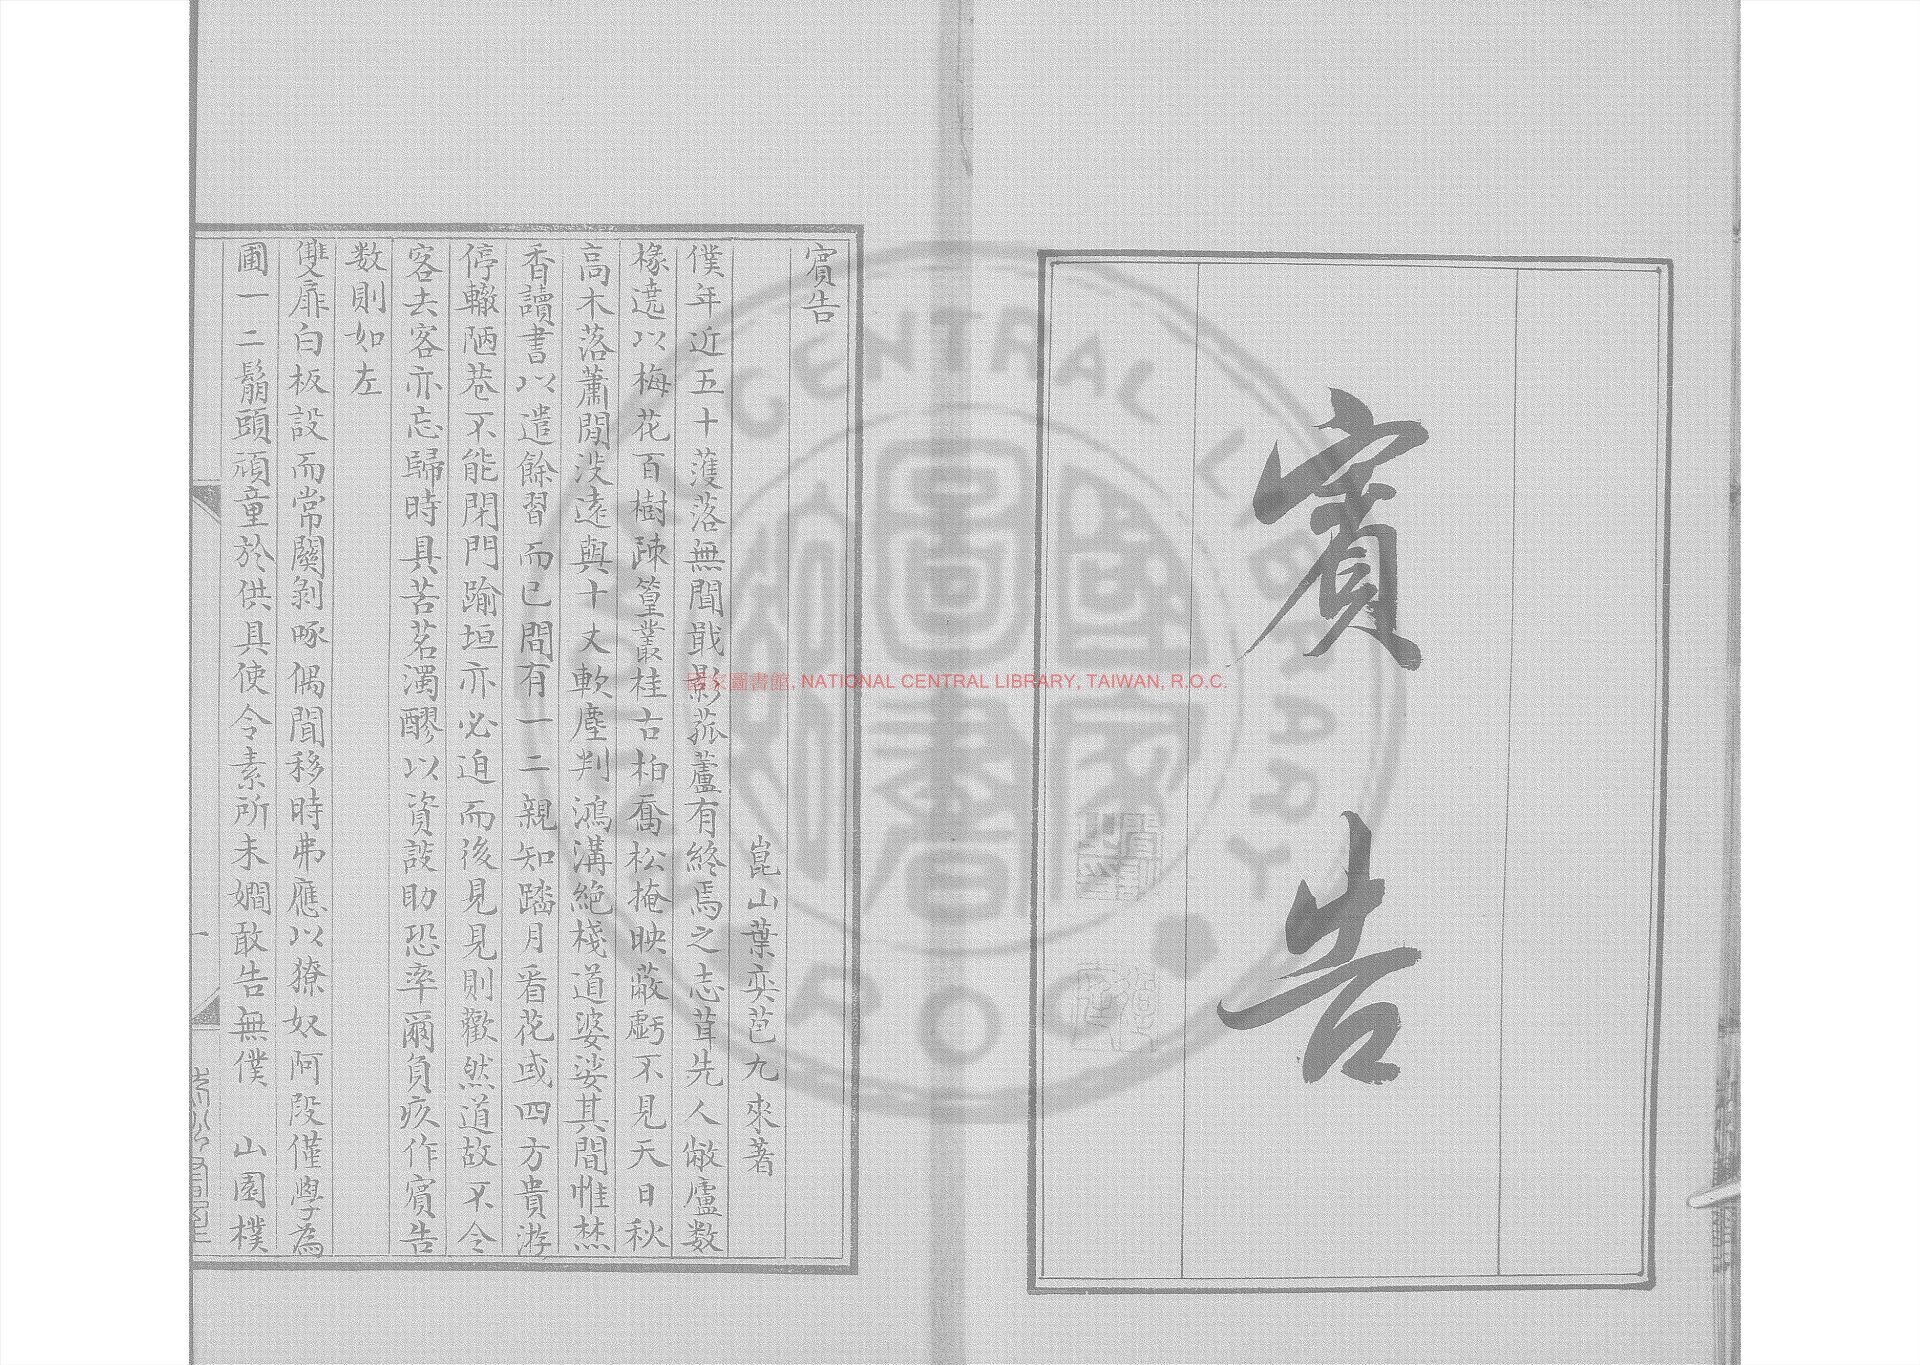 賓告
賓告
崑山葉奕苞九來著
僕年近五十蒦落無聞戢影菰蘆有終焉之志茸先人敝廬数
椽遶以梅花百樹疎篁叢桂古柏喬松掩映蔽虧不見天日秋
高木落蕭閒淡遠與十丈軟塵判鴻溝絶棧道婆娑其間惟焚
香讀書以遣餘習而已間有一二親知踏月看花或四方貴游
停轍陋巷不能閉門踰垣亦必迫而後見見則歡然道故不令
客去客亦忘歸時具苦茗濁醪以資談助恐率爾負疚作賓告
数則如左
雙扉白板設而常關剝啄偶聞移時弗應以獠奴阿段僅學為
圃一二鬅頭頑童於供具使令素所未嫺敢告無僕　山園樸
國家圖書館, NATIONAL CENTRAL LIBRARY, TAIWAN, R.O.C.
NATIONAL CENTRAL LIBRARY
R.O.C.
國家圖書館